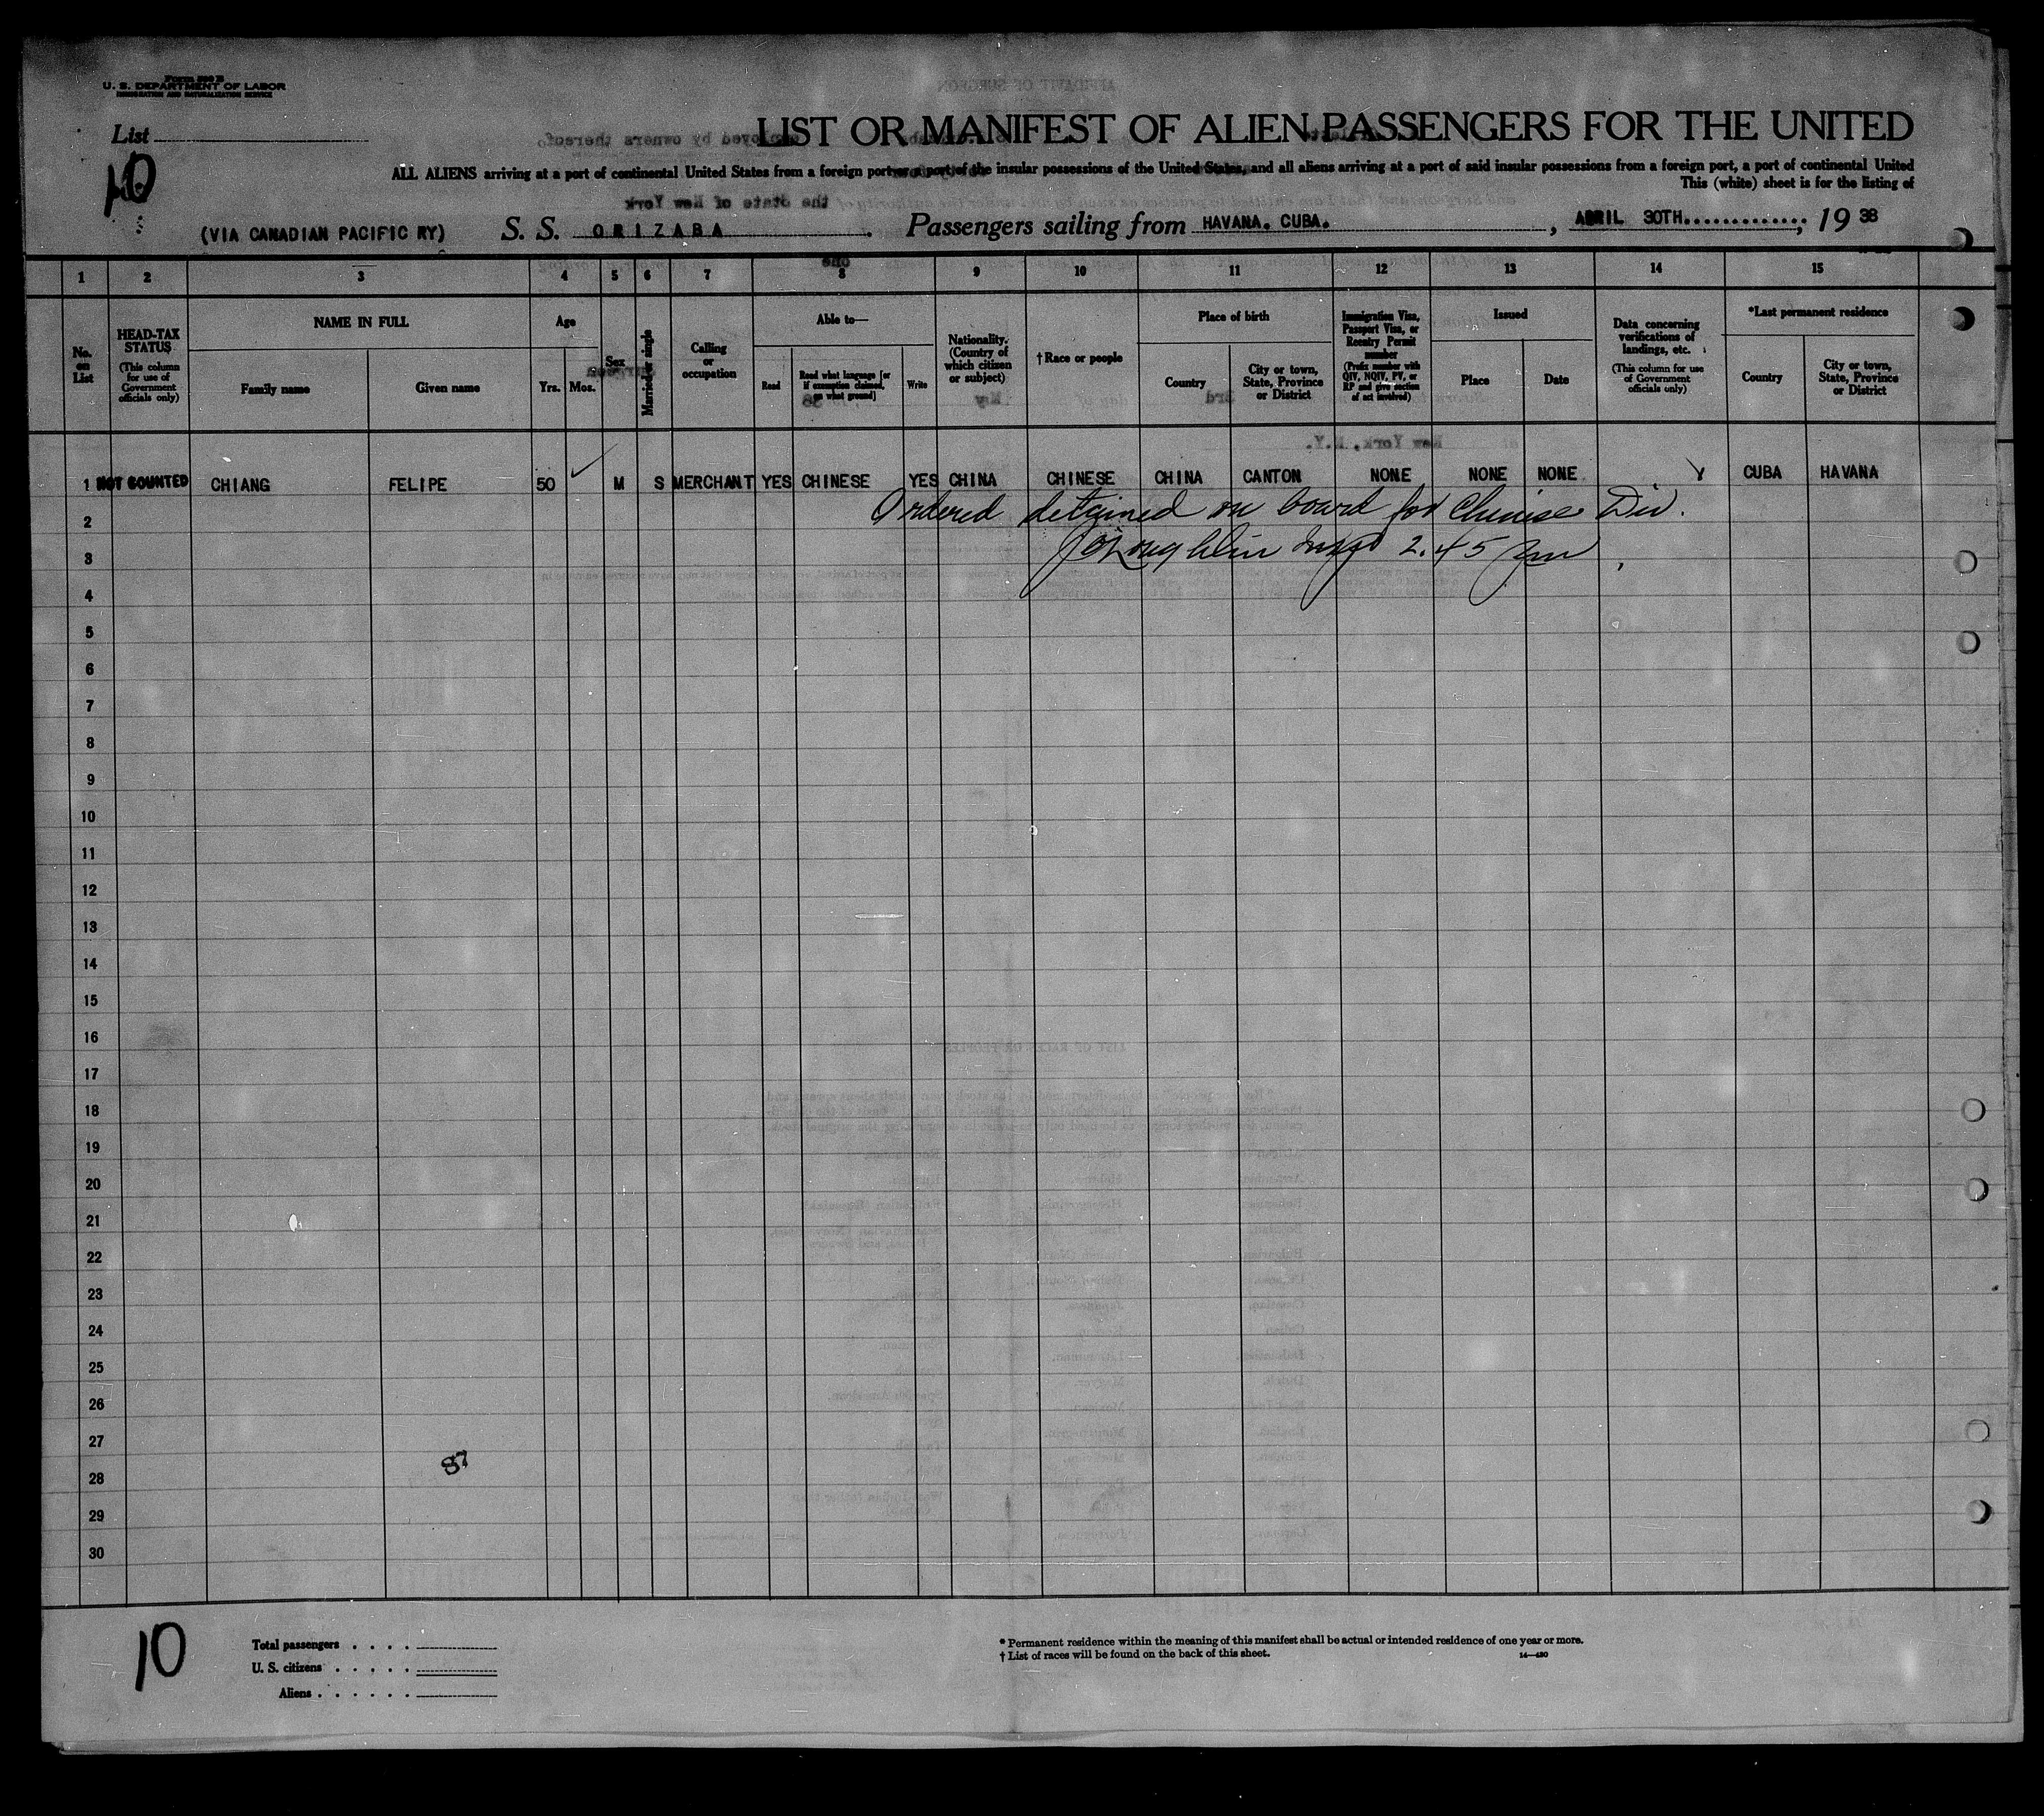 Form 500 B
U. S. DEPARTMENT OF LABOR
IMMIGRATION AND NATURALIZATION SERVICE
List
10
LIST OR MANIFEST OF ALIEN PASSENGERS FOR THE UNITED
ALL ALIENS arriving at a port of continental United States from a foreign port or a port of the insular possessions of the United States, and all aliens arriving at a port of said insular possessions from a foreign port, a port of continental United
This (white) sheet is for the listing of
(VIA CANADIAN PACIFIC RY) S. S. ORIZABA. Passengers sailing from HAVANA. CUBA., APRIL 30TH............., 19 38
1 2 3 4 5 6 7 8 9 10 11 12 13 14 15
No. on List
HEAD-TAX STATUS
(This column for use of Government officials only)
NAME IN FULL
Family name
Given name
Age
Yrs. Mos.
Sex
Married or single
Calling or occupation
Able to—
Read
Read what language [or if exemption claimed, on what ground]
Write
Nationality. (Country of which citizen or subject)
† Race or people
Place of birth
Country
City or town, State, Province or District
Immigration Visa, Passport Visa, or Reentry Permit number
(Prefix number with QIV, NQIV, PV, or RP and give section of act involved)
Issued
Place
Date
Data concerning verifications of landings, etc.
(This column for use of Government officials only)
*Last permanent residence
Country
City or town, State, Province or District
1 NOT COUNTED CHIANG FELIPE 50 ✓ M S MERCHANT YES CHINESE YES CHINA CHINESE CHINA CANTON NONE NONE NONE CUBA HAVANA
Ordered detained on board for Chinese Div.
2
3
2.45 pm
4
5
6
7
8
9
10
11
12
13
14
15
16
17
18
19
20
21
22
23
24
25
26
27
87
28
29
30
10
Total passengers . . . .
U. S. citizens . . . . .
Aliens . . . . . .
* Permanent residence within the meaning of this manifest shall be actual or intended residence of one year or more.
† List of races will be found on the back of this sheet.
14—430